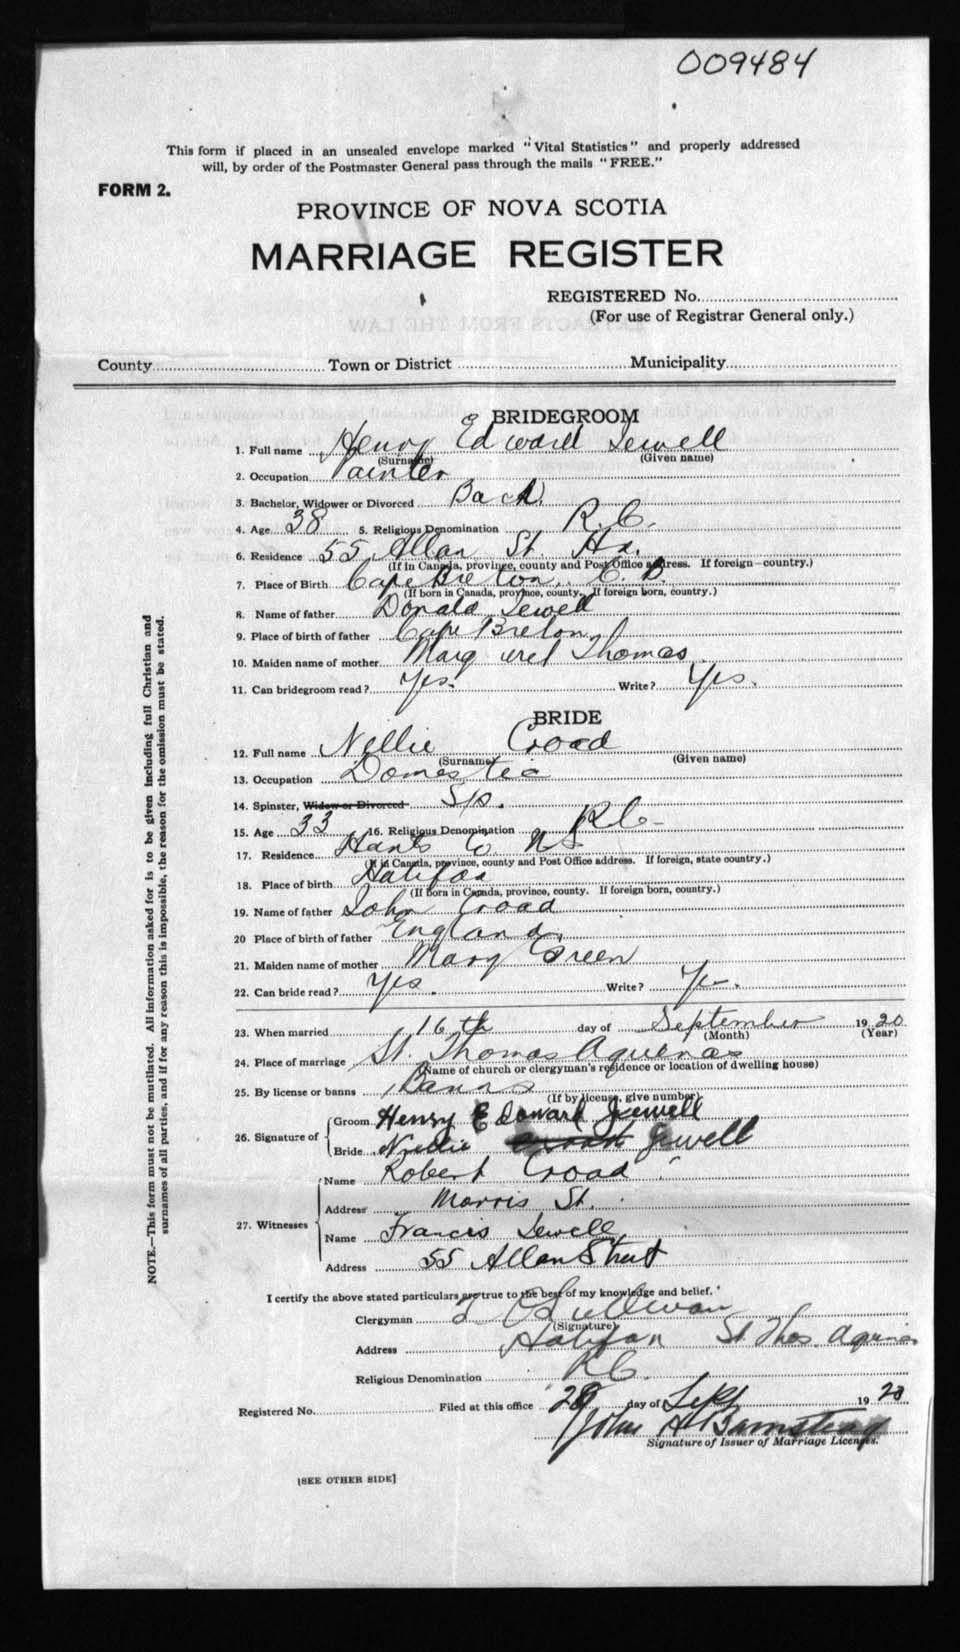 009484
This form if placed in an unsealed envelope marked "Vital Statistics" and properly addressed
will, by order of the Postmaster General pass through the mails "FREE."
FORM 2.
PROVINCE OF NOVA SCOTIA
MARRIAGE REGISTER
REGISTERED No.
(For use of Registrar General only.)
County Town or District Municipality
BRIDEGROOM
1. Full name Henry Edward Jewell
(Surname) (Given name)
2. Occupation Painter
3. Bachelor, Widower or Divorced Bach.
4. Age 38 5. Religious Denomination R.C.
6. Residence 55 Allan St Hx.
(If in Canada, province, county and Post Office address. If foreign—country.)
7. Place of Birth Cape Breton, C.B.
(If born in Canada, province, county. If foreign born, country.)
8. Name of father Donald Jewell
9. Place of birth of father Cape Breton
10. Maiden name of mother Margaret Thomas
11. Can bridegroom read? Yes. Write? Yes.
BRIDE
12. Full name Nellie Croad
(Surname) (Given name)
13. Occupation Domestic
14. Spinster, Widow or Divorced Sp.
15. Age 33 16. Religious Denomination R.C.
17. Residence Hants Co NS
(If in Canada, province, county and Post Office address. If foreign, state country.)
18. Place of birth Halifax
(If born in Canada, province, county. If foreign born, country.)
19. Name of father John Croad
20 Place of birth of father England.
21. Maiden name of mother Mary Green
22. Can bride read? Yes. Write? Yes.
23. When married 16th day of September 1920
(Month) (Year)
24. Place of marriage St. Thomas Aquinas
(Name of church or clergyman's residence or location of dwelling house)
25. By license or banns Banns
(If by license, give number)
26. Signature of Groom Henry Edward Jewell
Bride Nellie Jewell
27. Witnesses Name Robert Croad
Address Morris St.
Name Francis Jewell
Address 55 Allan Street
I certify the above stated particulars are true to the best of my knowledge and belief.
Clergyman O'Sullivan
(Signature)
Address Halifax St. Thos. Aquinas
Religious Denomination R.C.
Registered No. Filed at this office day of Sept 1920
John A Barnstead
Signature of Issuer of Marriage Licenses.
[SEE OTHER SIDE]
NOTE.—This form must not be mutilated. All information asked for is to be given including full Christian and
surnames of all parties, and if for any reason this is impossible, the reason for the omission must be stated.